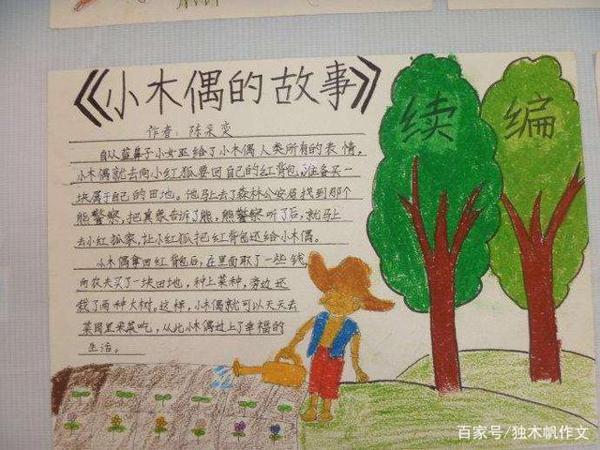 《小木偶的故事》
续编
作者:陈采奕
自从蓝鼻子小女巫给了小木偶人类所有的表情,
小木偶就去向小红狐要回自己的红背包,准备买一
块属于自己的田地。他马上去了森林公安局找到那个
熊警察,把真象告诉了熊,熊警察听了后,就马上
去小红狐家,让小红狐把红背包还给小木偶。
小木偶拿回红背包后,在里面取了一些钱,
向农夫买了一块田地,种上菜种,旁边还
栽了两种大树。这样,小木偶就可以天天去
菜园里采菜吃,从此小木偶过上了幸福的
生活。
百家号/独木帆作文